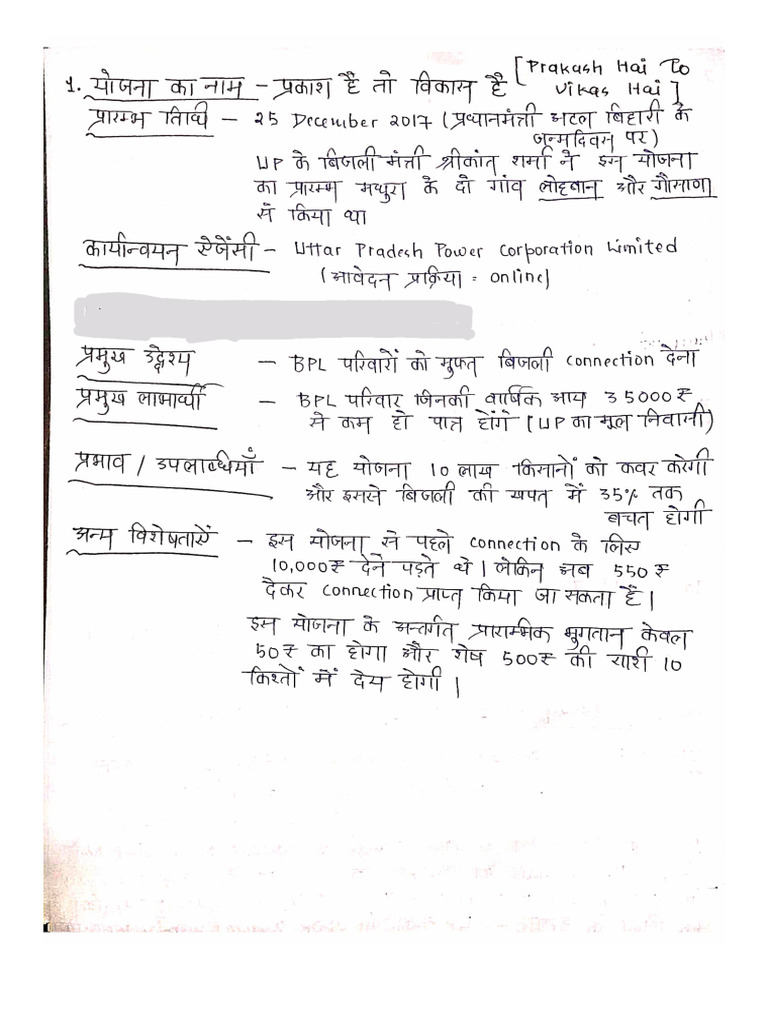 1. योजना का नाम - प्रकाश है तो विकास है [Prakash Hai To
Vikas Hai]
प्रारम्भ तिथि - 25 December 2017 (प्रधानमंत्री अटल बिहारी के
जन्मदिवस पर)
UP के बिजली मंत्री श्रीकांत शर्मा ने इस योजना
का प्रारम्भ मथुरा के दो गांव लोहबान और गौसाणा
से किया था
कार्यान्वयन ऐजेंसी - Uttar Pradesh Power Corporation Limited
(आवेदन प्रक्रिया = online)
प्रमुख उद्देश्य - BPL परिवारों को मुफ्त बिजली connection देना
प्रमुख लाभार्थी - BPL परिवार जिनकी वार्षिक आय 35000₹
से कम हो पात्र होंगे (UP का मूल निवासी)
प्रभाव / उपलब्धियाँ - यह योजना 10 लाख किसानों को कवर करेगी
और इससे बिजली की खपत में 35% तक
बचत होगी
अन्य विशेषताऐं - इस योजना से पहले connection के लिए
10,000₹ देने पड़ते थे। लेकिन अब 550₹
देकर connection प्राप्त किया जा सकता है।
इस योजना के अन्तर्गत प्रारम्भिक भुगतान केवल
50₹ का होगा और शेष 500₹ की राशी 10
किश्तों में देय होगी।